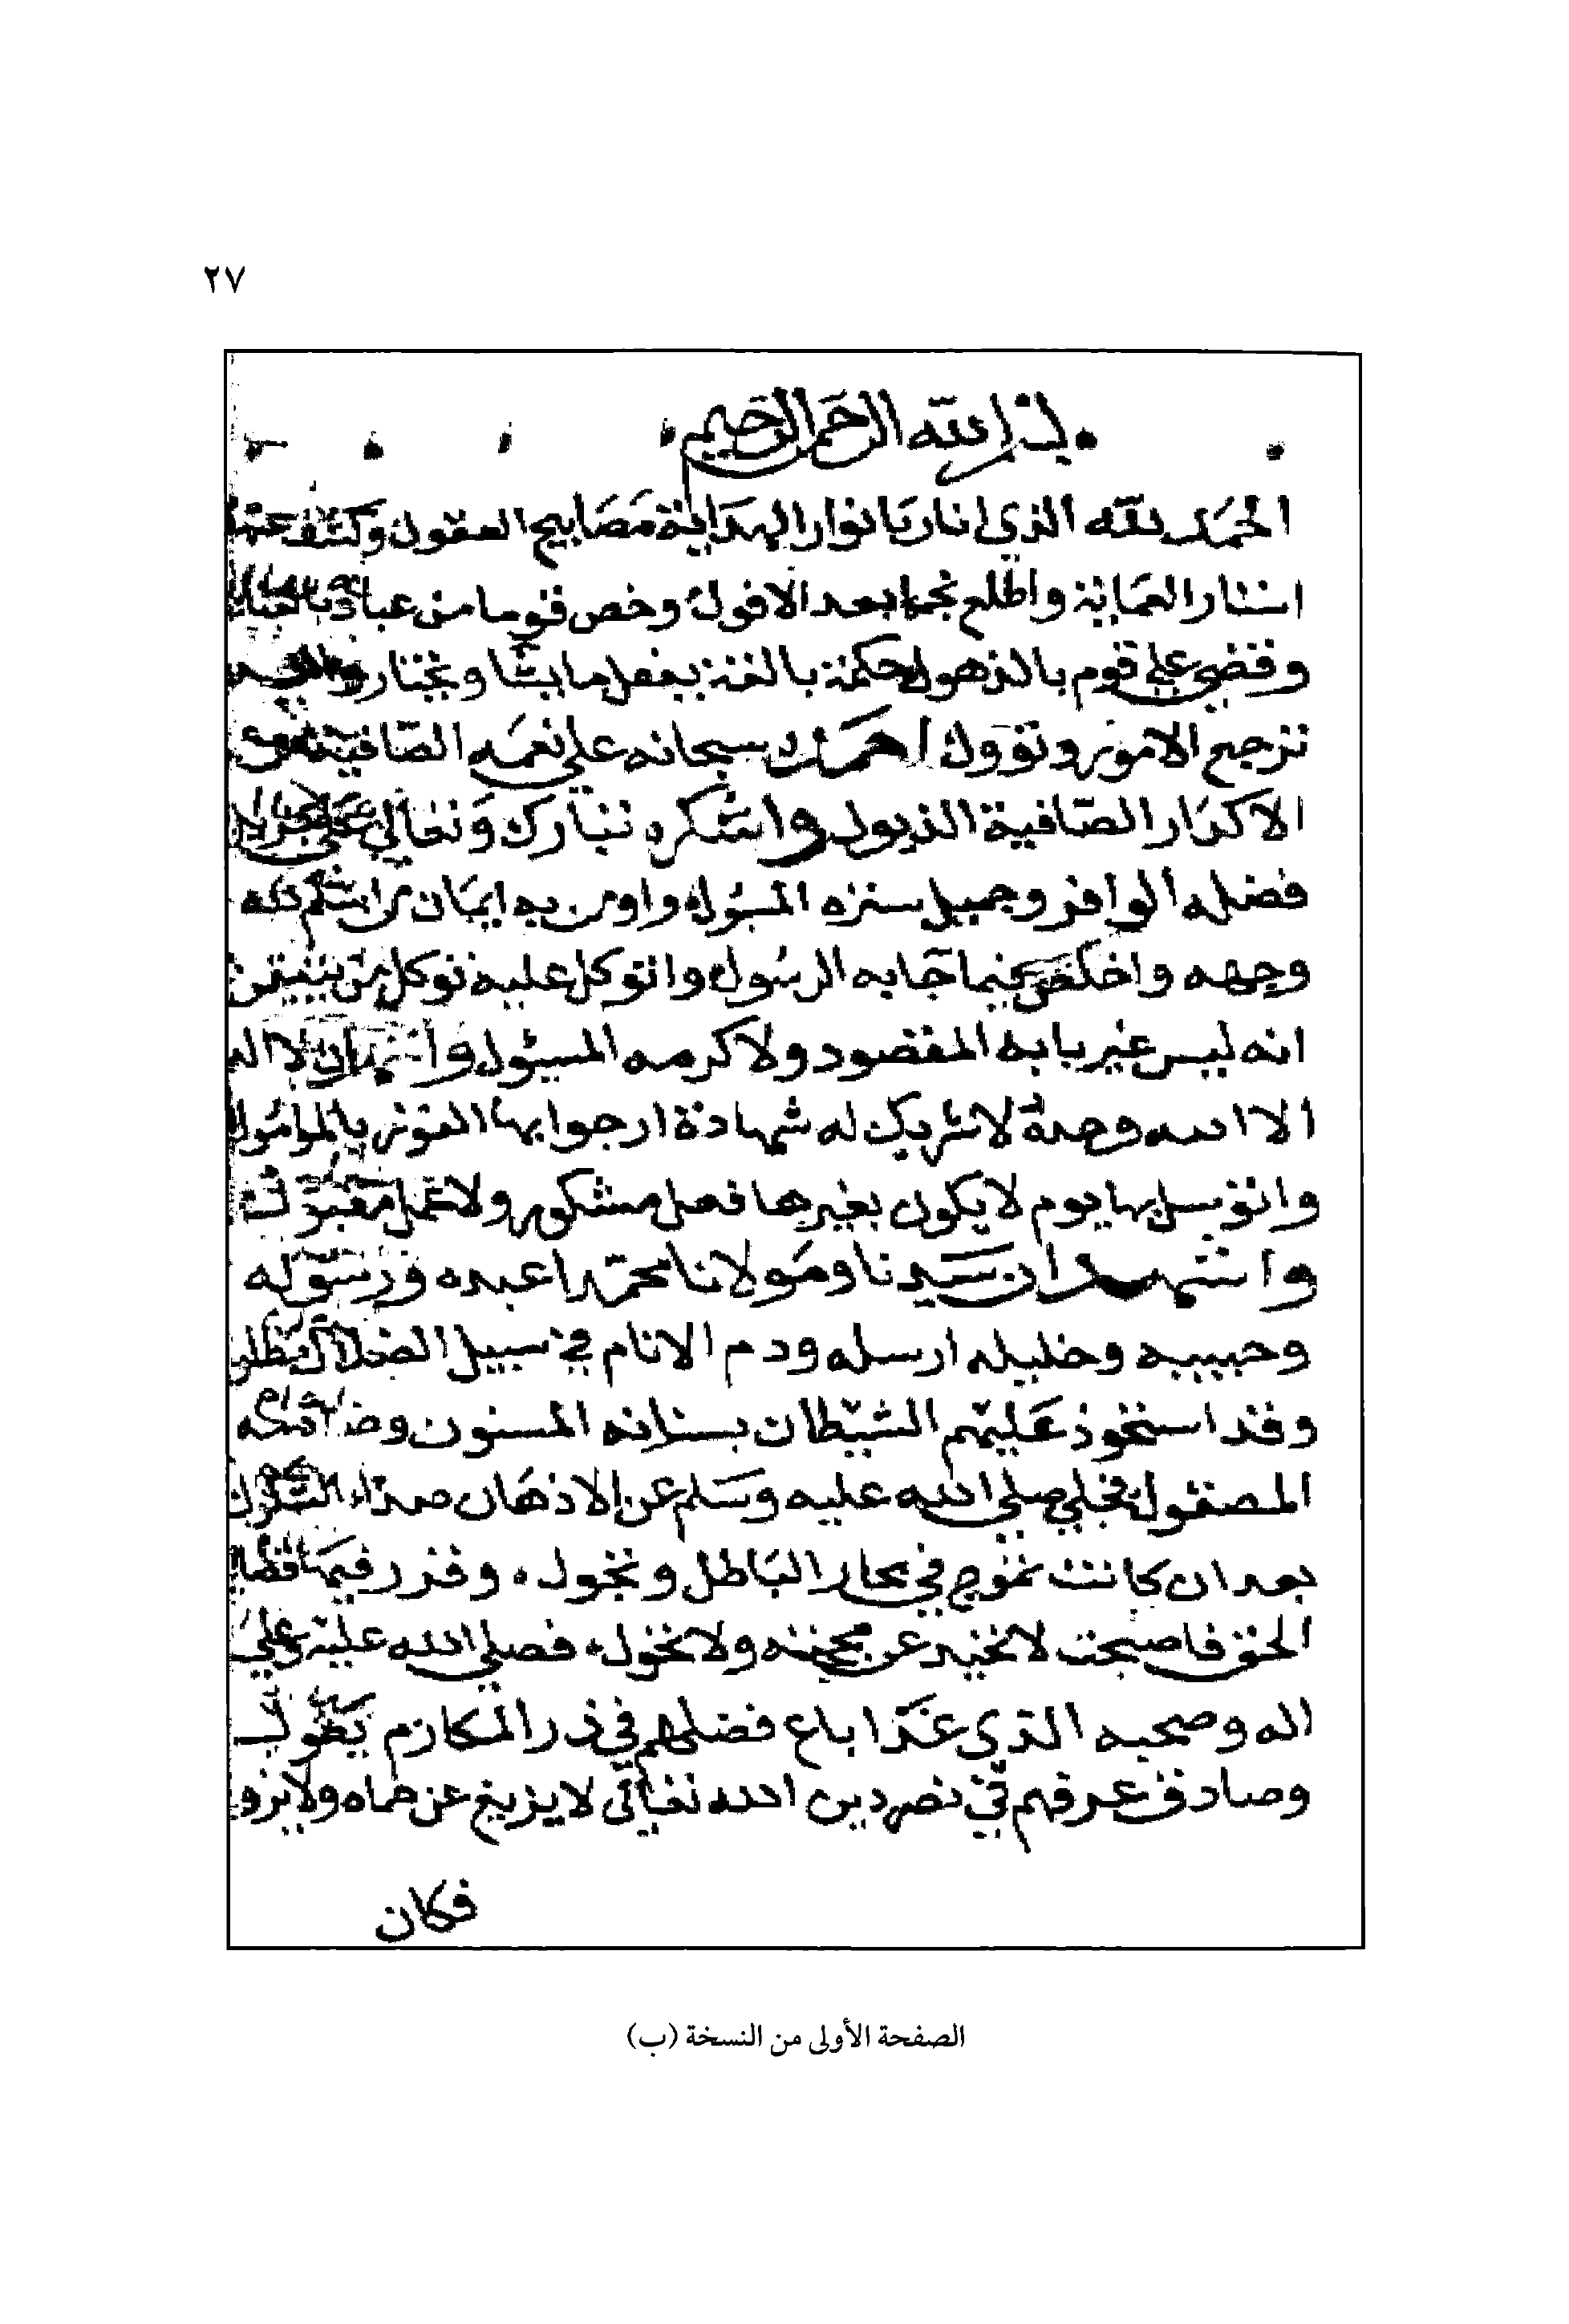 ٢٧
بسم الله الرحمن الرحيم
الحمد لله الذي انار بانوار الهداية مصابيح العقول وكشف عنها
استار العماية واطلع نجمها بعد الافول وخص قوما من عباده
وقضى على قوم بالذهول لحكمة بالغة يفعل ما يشا ويختار واليه
ترجع الامور وتؤول احمده سبحانه علي نعمه الصافية من
الاكدار الضافية الذيول واشكره تبارك وتعالي علي
فضله الوافر وجميل ستره المسؤل واومن به ايمان من اسلم لله
وجهه واخلص فيما جا به الرسول واتوكل عليه توكل من تيقن
انه ليس غير بابه المقصود ولا كرمه المسئول واشهد ان لا اله
الا الله وحده لا شريك له شهادة ارجوا بها الفوز بالمامول
واتوسل بها يوم لا يكون بغيرها فعل مشكور ولا عمل مقبول
واشهد ان سيدنا ومولانا محمدا عبده ورسوله
وحبيبه وخليله ارسله ودم الانام في سبيل الضلال مطلول
وقد استحوذ عليهم الشيطان بسنانه المسنون
المصقول فجلي صلي الله عليه وسلم عن الاذهان صداء الشكوك
بعد ان كانت تموج في بحار الباطل وتجول وقرر فيها
الحق فاصبحت لا تحيد عن محجته ولا تحول فصلي الله عليه وعلي
اله وصحبه الذي غدا باع فضلهم في ذر المكارم يطول
وصادق عرفهم في نصر دين الله تعالي لا يزيغ عن حماه ولا يزول
فكان
الصفحة الأولى من النسخة (ب)